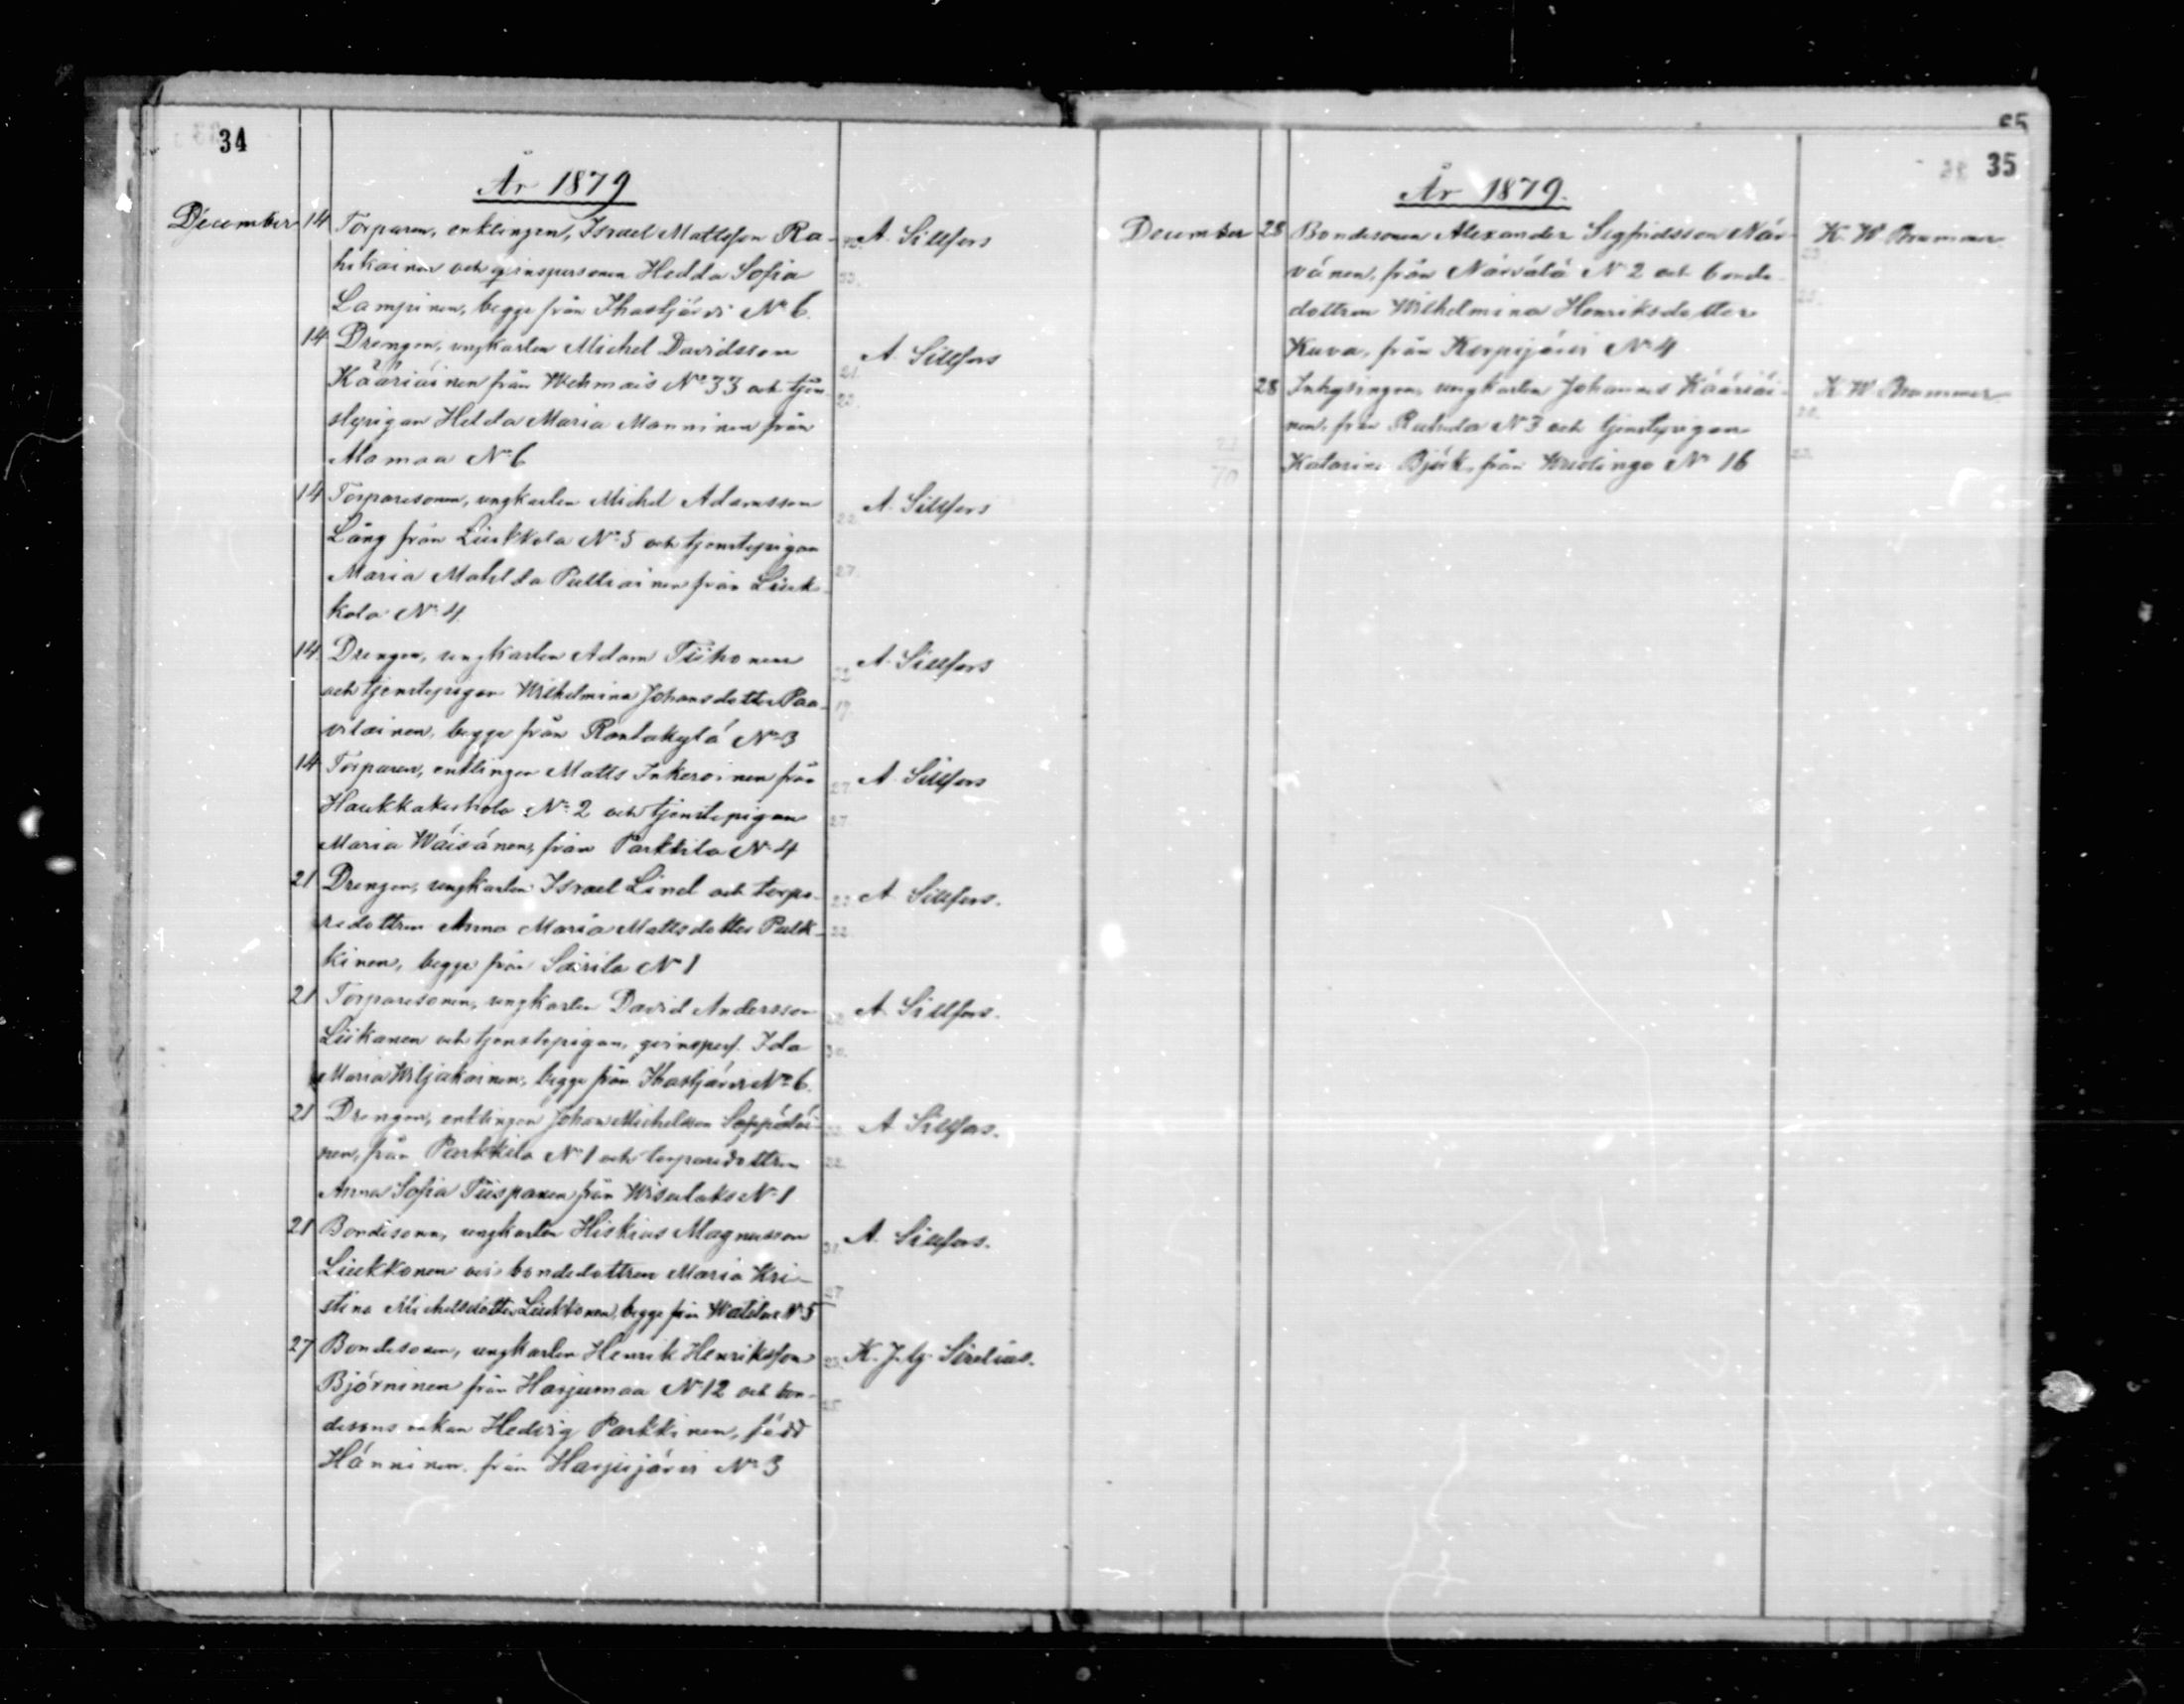 34
År 1879
December 14 Torparen, enklingen, Israel Mattsson Ra-
hikainen och qvinspersonen Hedda Sofia
Lampinen, begge från Ihastjärvi No 6.
A. Sillfors
14 Drengen, ungkarlen Michel Davidsson
Kääriäinen från Wehmais No 33 och tjen-
stepigan Hedda Maria Manninen från
Alamaa No 6
A. Sillfors
14 Torparesonen, ungkarlen Michel Adamsson
Lång från Liukkola No 5 och tjenstepigan
Maria Matilda Pulliainen från Liuk-
kola No 4
A. Sillfors
14 Drengen, ungkarlen Adam Tiihonen
och tjenstepigan Wilhelmina Johansdotter Paa-
vilainen, begge från Rantakylä No 3
A. Sillfors
14 Torparen, enklingen Matts Inkeroinen från
Haukkakorhola No 2 och tjenstepigan
Maria Wäisänen, från Parkkila No 4
A. Sillfors
21 Drengen, ungkarlen Israel Lind och torpa-
redottren Anna Maria Mattsdotter Pulk-
kinen, begge från Sairila No 1
A. Sillfors.
21 Torparesonen, ungkarlen David Andersson
Liikanen och tjenstepigan, qvinspers. Ida
Maria Wiljakainen, begge från Ihastjärvi No 6.
A. Sillfors.
21 Drengen, enklingen Johan Michelsson Seppäläi-
nen, från Parkkila No 1 och torparedottren
Anna Sofia Tiispanen från Wisulaks No 1
A. Sillfors.
21 Bondesonen, ungkarlen Hiskias Magnusson
Liukkonen och bondedottren Maria Kri-
stina Michelsdotter Liukkonen, begge från Watila No 5
A. Sillfors.
27 Bondesonen, ungkarlen Henrik Henriksson
Björninen från Harjumaa No 12 och bon-
desons enkan Hedvig Parkkinen, född
Hänninen från Harjujärvi No 3
K. J. G. Sirelius.
35
År 1879.
December 28 Bondesonen Alexander Sigfridsson När-
vänen, från Närvälä No 2 och bonde-
dottren Wilhelmina Henriksdotter
Kuva, från Korpijärvi No 4
K. W. Brummer
28 Inhysingen, ungkarlen Johannes Kääriäi-
nen, från No 3 och tjenstepigan
Katarina Björk, från No 16
K. W. Brummer